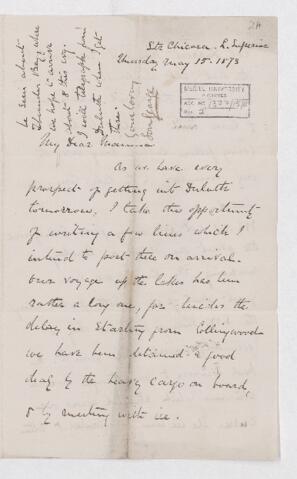 24
Str Chicora. L. Superior
Thursday May 15. 1873
McGILL UNIVERSITY
ARCHIVES
ACC. NO.
REF. 2
My Dear Mamma
As we have every
prospect of getting into Duluth
tomorrow, I take this opportunity
of writing a few lines which I
intend to post there on arrival.
Our voyage up the lakes has been
rather a long one, for besides the
delay in starting from Collingwood
we have been detained a good
deal by the heavy cargo on board,
& by meeting with ice.
be seen about
Thunder Bay, where
we hope to arrive
about
I will telegraph from
Duluth when I get
there.
Your loving
Son George